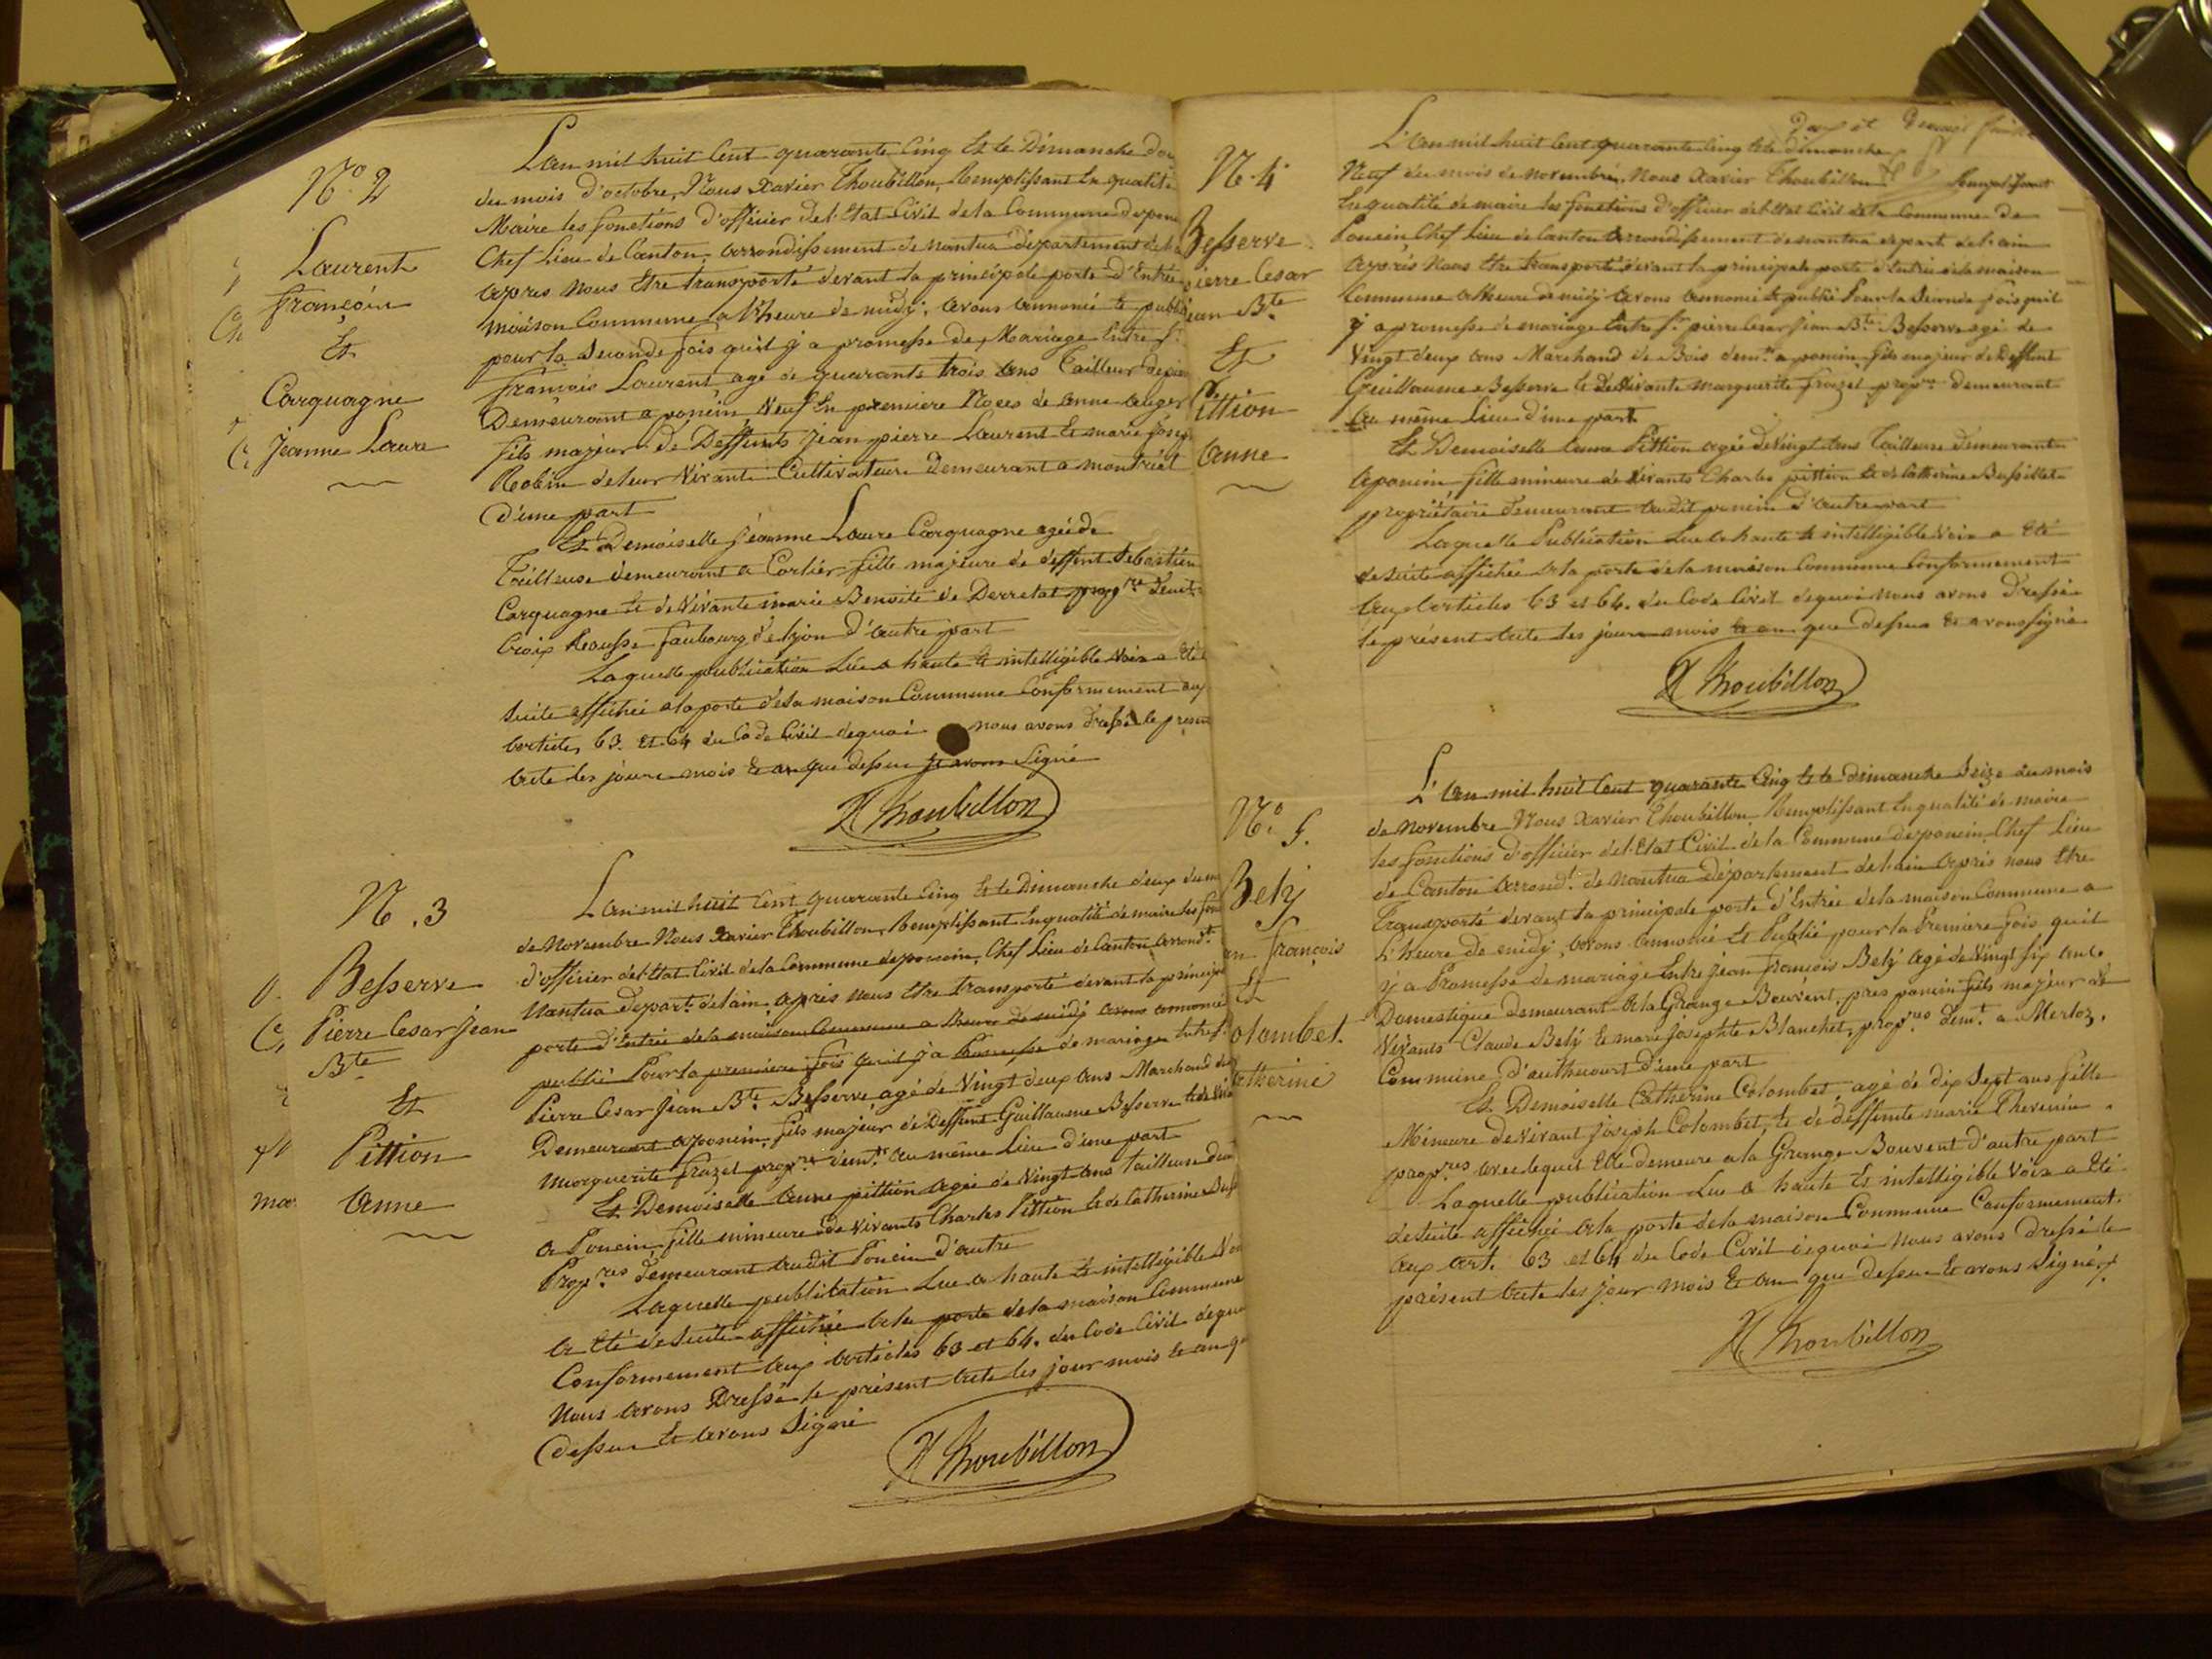 N.º 2
Laurent
françois
Et
Carquagne
Jeanne Laure
L'an mil huit Cent quarante Cinq Et le Dimanche
du mois d'octobre, Nous Xavier Thoubillon, Remplissant En qualité
Maire les fonctions d'officier del'Etat Civil dela Commune deponc
Chef Lieu de Canton, arrondissement de nantua département de l
apres nous Etre transporté devant la principale porte d'Entrée
maison Commune a l'heure de midy, avons annoncé et publié
pour la Seconde fois qu'il y a promesse de Mariage Entre S.r
françois Laurent agé de quarante trois ans Tailleur depier
Demeurant a poncin Veuf En premiere Noces de anne auger
fils majeur de Deffunts jean pierre Laurent Et marie
Robin deleur Vivant Cultivateurs Demeurant a montréal
d'une part
Et Demoiselle Jeanne Laure Carquagne agée de
Tailleuse demeurant a Corlier fille majeure de deffunt Sebastien
Carquagne Et de Vivante marie Benoite de Derretat prop.re dem.t
Croix Rousse faubourg de lyon d'autre part
Laquelle publication Lue a haute Et intelligible Voix a Eté
suite affichée a la porte dela maison Commune Conformement aux
articles 63. Et 64 du Code Civil dequoi nous avons dressé le present
acte les jour mois Et an que dessus Et avons Signé
X Thoubillon
N. 3
Besserve
Pierre Cesar Jean
B.te
Et
Pittion
anne
L'an mil huit Cent quarante Cinq Et le Dimanche deux du m
de Novembre Nous Xavier Thoubillon, Remplissant Enqualité de maire les fonc
d'officier del'Etat Civil dela Commune deponcin, Chef Lieu de Canton arrond.t
Nantua depart.t delain, après nous Etre transporté devant la principa
porte d'Entrée dela maison Commune a l'heure de midy avons annoncé
publié Pour la première fois qu'il y a Promesse de mariage Entre S.r
Pierre Cesar Jean B.te Besserve agé de Vingt deux ans Marchand de
Demeurant aponcin, fils majeur de Deffunt Guillaume Besserve Et de Viv
Marguerite frazet prop.re dem.t au même Lieu d'une part
Et Demoiselle anne pittion agée de Vingt ans tailleuse
a Poncin fille mineure de Vivants Charles Pittion Et de Catherine
Prop.res demeurant audit Poncin d'autre
Laquelle publication Lue a haute Et intelligible Voi
a Eté de Suite affichée ala porte dela maison Commune
Conformement aux articles 63 et 64. du Code Civil dequoi
Nous avons Dressé le présent acte les jour mois Et an q
dessus Et avons Signé
X Thoubillon
N. 4
Besserve
ierre Cesar
ean B.te
Et
Pittion
anne
L'an mil huit Cent quarante Cinq Et le dimanche
Neuf du mois de novembre, Nous Xavier Thoubillon
Enqualité de maire les fonctions d'officier del'Etat Civil dela Commune de
Poncin, Chef Lieu de Canton arrondissement de nantua depart. delain
après Nous Etre transporté devant la principale porte d'Entrée dela maison
Commune a l'heure de midy avons annoncé Et publié Pour la Seconde fois qu'il
y a promesse de mariage Entre S.r pierre Cesar Jean B.te Besserve agé de
Vingt deux ans Marchand de Bois dem.t a poncin, fils majeur de Deffunt
Guillaume Besserve Et de Vivante marguerite frazet prop.re demeurant
au même Lieu d'une part
Et Demoiselle anne Pittion agée de Vingt ans Tailleuse demeurant
aponcin fille mineure de Vivants Charles pittion Et de Catherine
propriétaire demeurant audit poncin d'autre part
Laquelle Publication Lue a haute Et intelligible Voix a Eté
de Suite affichée a la porte dela maison Commune Conformement
aux articles 63 et 64. du Code Civil dequoi nous avons Dressé
le présent acte les jour mois Et an que dessus Et avons signé
X Thoubillon
N.º 5.
Bely
an françois
Et
olombet.
atherine
L'an mil huit Cent quarante Cinq Et le dimanche Seize du mois
de Novembre Nous Xavier Thoubillon Remplissant Enqualité de maire
les fonctions d'officier del'Etat Civil dela Commune deponcin, Chef Lieu
de Canton arrond.t de nantua département delain après nous Etre
Transporté devant la principale porte d'Entrée dela maison Commune a
L'heure de midy, avons annoncé Et Publié pour la Première fois qu'il
y a Promesse de mariage Entre jean françois Bely agé de Vingt six ans
Domestique demeurant ala Grange Bouvent, pres poncin fils majeur de
Vivants Claude Bely Et marie josephte Blanchet, prop.res dem.t a Merloz,
Commune d'authucourt d'une part
Et Demoiselle Catherine Colombet, agé de dix Sept ans fille
Mineure de Vivant Joseph Colombet, Et de deffunte marie Thevenin
prop.res avec lequel Elle demeure a la Grange Bouvent d'autre part
Laquelle publication Lue a haute Et intelligible Voix a Eté
desuite affichée ala porte dela maison Commune Conformement
aux art. 63 et 64 du Code Civil dequoi Nous avons dressé le
présent acte les jour mois Et an que dessus Et avons Signé
X Thoubillon